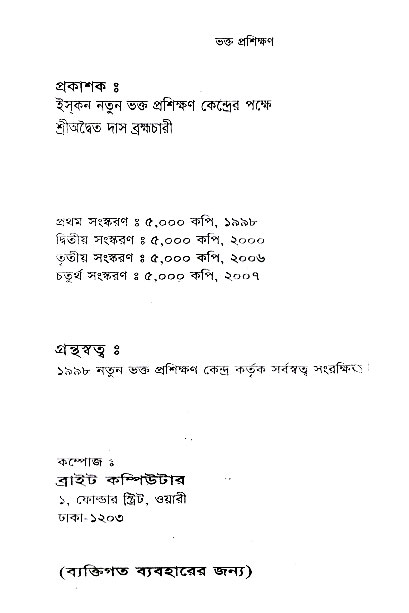 ভক্ত প্রশিক্ষণ
প্রকাশক ঃ
ইস্‌কন নতুন ভক্ত প্রশিক্ষণ কেন্দ্রের পক্ষে
শ্রীঅদ্বৈত দাস ব্রহ্মচারী
প্রথম সংস্করণ ঃ ৫,০০০ কপি, ১৯৯৮
দ্বিতীয় সংস্করণ ঃ ৫,০০০ কপি, ২০০০
তৃতীয় সংস্করণ ঃ ৫,০০০ কপি, ২০০৬
চতুর্থ সংস্করণ ঃ ৫,০০০ কপি, ২০০৭
গ্রন্থস্বত্ব ঃ
১৯৯৮ নতুন ভক্ত প্রশিক্ষণ কেন্দ্র কর্তৃক সর্বস্বত্ব সংরক্ষিত
কম্পোজ ঃ
ব্রাইট কম্পিউটার
১, ফোল্ডার স্ট্রিট, ওয়ারী
ঢাকা-১২০৩
(ব্যক্তিগত ব্যবহারের জন্য)